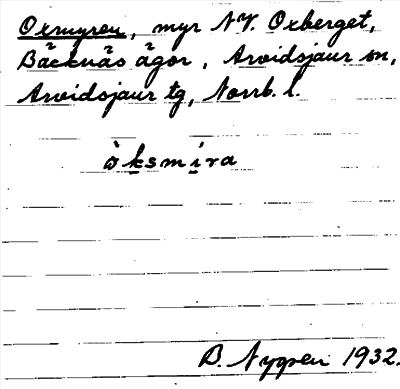 Oxmyren, myr NV. Oxberget,
Bäcknäs ägor, Arvidsjaur sn,
Arvidsjaur tg, Norrb. l.
òksmi̱ra
B. Nygren 1932.